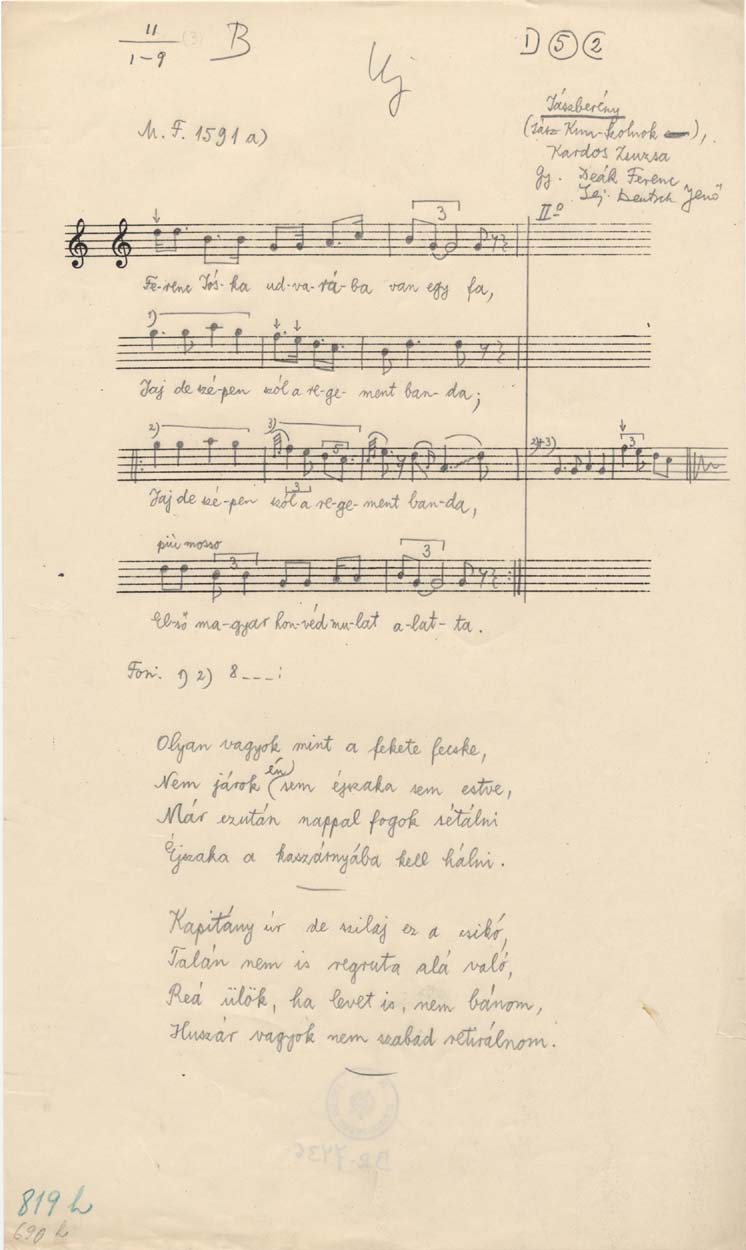 11
1-9
(3) B
Uj
D ⑤ ②
M. F. 1591 a)
Jászberény
(Jász-Kun-Szolnok),
Kardos Zsuzsa
Gy. Deák Ferenc
Lej. Deutsch Jenő
II.º
3
Fe-renc Jós-ka ud-va-rá-ba van egy fa,
1)
Jaj de szé-pen szól a re-ge-ment ban-da;
2) 3) 5 2)+3) 3
3
Jaj de szé-pen szól a re-ge-ment ban-da,
più mosso
3 3
El-ső ma-gyar hon-véd mu-lat a-lat-ta.
Fon. 1) 2) 8---:
Olyan vagyok mint a fekete fecske,
Nem járok én sem éjszaka sem estve,
Már ezután nappal fogok sétálni
Éjszaka a kaszárnyába kell hálni.
Kapitány úr de szilaj ez a csikó,
Talán nem is regruta alá való,
Reá ülök, ha levet is, nem bánom,
Huszár vagyok nem szabad retirálnom.
819 h
690 h